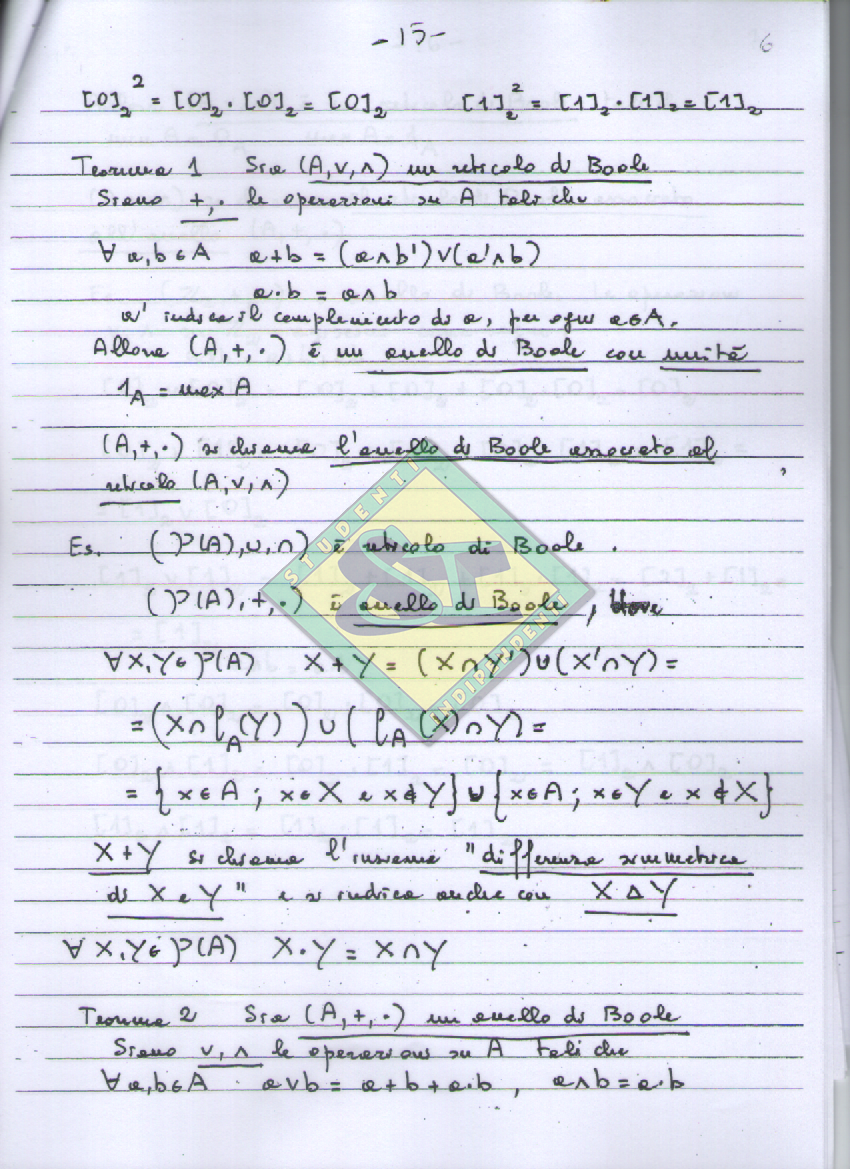 -15-
6
[0]₂² = [0]₂ · [0]₂ = [0]₂ [1]₂² = [1]₂ · [1]₂ = [1]₂
Teorema 1 Sia (A, ∨, ∧) un reticolo di Boole
Siano +, · le operazioni su A tali che
∀ a, b ∈ A a + b = (a ∧ b') ∨ (a' ∧ b)
a · b = a ∧ b
a' indica il complemento di a, per ogni a ∈ A.
Allora (A, +, ·) è un anello di Boole con unità
1_A = max A
(A, +, ·) si chiama l'anello di Boole associato al
reticolo (A, ∨, ∧)
Es. (P(A), ∪, ∩) è reticolo di Boole .
(P(A), +, ·) è anello di Boole, dove
∀ X, Y ∈ P(A) X + Y = (X ∩ Y') ∪ (X' ∩ Y) =
= (X ∩ ∁_A (Y)) ∪ (∁_A (X) ∩ Y) =
= {x ∈ A ; x ∈ X e x ∉ Y} ∪ {x ∈ A ; x ∈ Y e x ∉ X}
X + Y si chiama l'insieme "differenza simmetrica
di X e Y" e si indica anche con X Δ Y
∀ X, Y ∈ P(A) X · Y = X ∩ Y
Teorema 2 Sia (A, +, ·) un anello di Boole
Siano ∨, ∧ le operazioni su A tali che
∀ a, b ∈ A a ∨ b = a + b + a · b , a ∧ b = a · b
STUDENTI
INDIPENDENTI